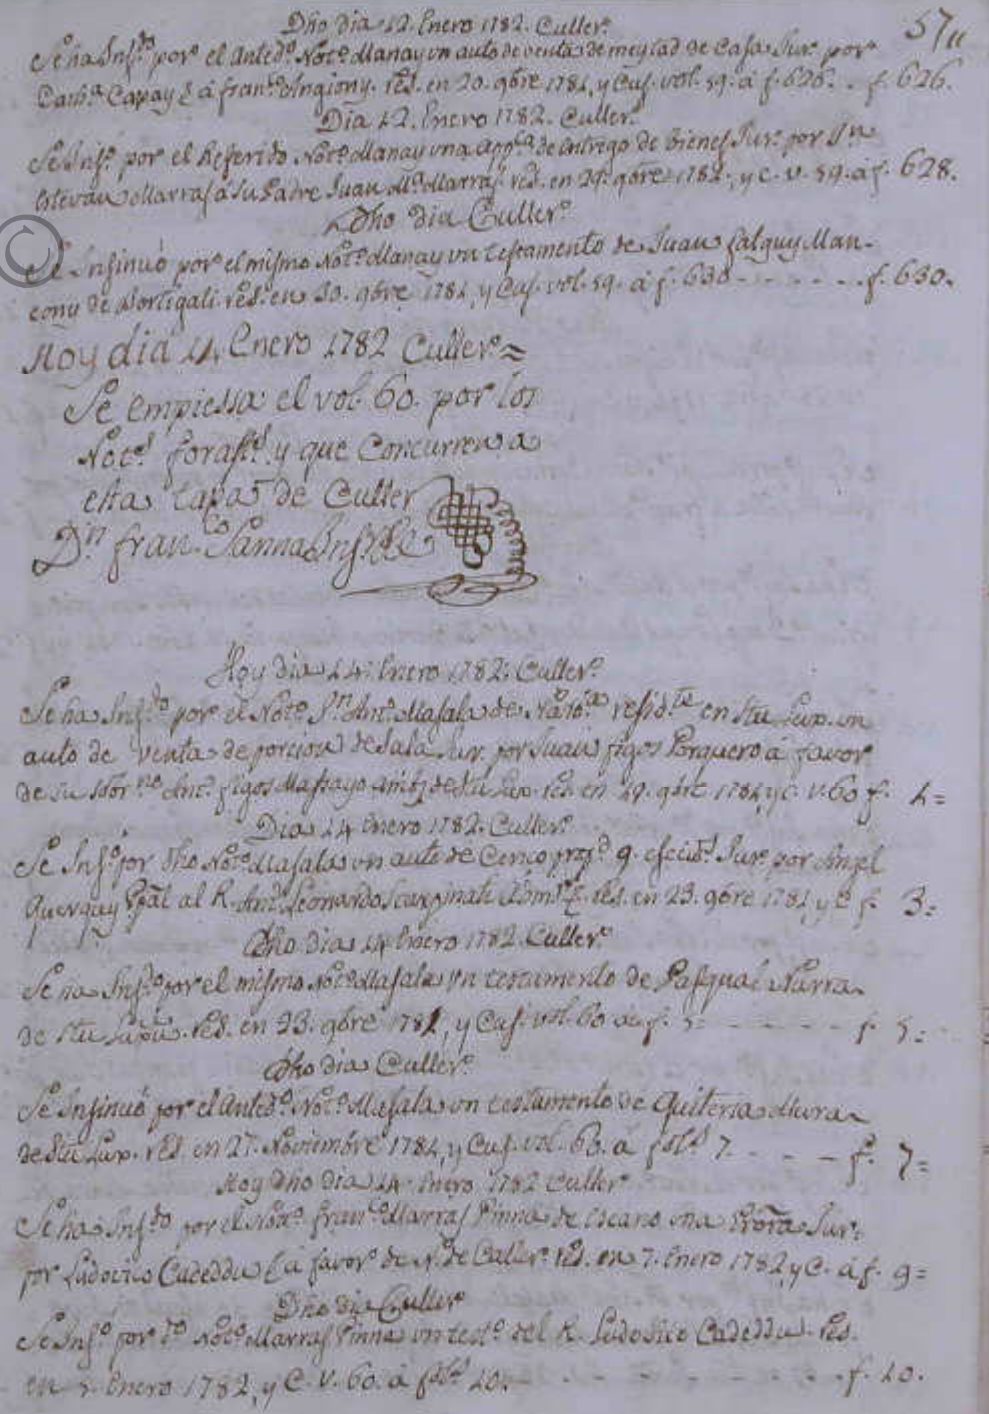 57
Dho dia 12. Enero 1782. Culler.
Se ha Insdo por el Anteds. Noto. Manay un auto de venta de meytad de Casa Jur. por
Capay á franco Angiony. red. en 20. 9bre 1781, y Cus. vol. 59. á f. 626. . f. 626.
Dia 12. Enero 1782. Culler.
Se Inso. por el Referido Noto. Manay una de entrego de bienes Jur. por
Estevan Marras á Su Padre Juan Marras. red. en 29. 9bre 1781, y C. v. 59. á f. 628.
Dho dia Culler.
Se Insinuó por el mismo Noto. Manay un testamento de Juan falquy Man-
cony de Bortigali. red. en 30. 9bre 1781, y Cus. vol. 59. á f. 630 - - - - - f. 630.
Hoy dia 14. Enero 1782 Culler =
Se empiessa el vol. 60. por los
Nots. forasts. y que Concurren a
esta tapa de Culler
Dn franco Sanna Insr.
Hoy dia 14. Enero 1782. Culler.
Se ha Insdo por el Noto. Jn. Anto. Masala de reside en Stu Lux. un
auto de venta de porcion de Sala Jur. por Juan figos Porquero á favor
de su figos de Stu Lux. red. en 29. 9bre 1781, y C. v. 60 f. 1=
Dia 14 Enero 1782. Culler.
Se Inso. por dho Noto. Masala un auto de Jur. por Angel
Querquy al R. Anto. Leonardo red. en 23. 9bre 1781, y C. f. 3=
Dho dia 14 Enero 1782. Culler.
Se ha Inso. por el mismo Noto. Masala un testamento de Pasqual Narra
de Stu red. en 23. 9bre 1781, y Cus. vol. 60 á f. 5= - - - - f. 5=
Dho dia Culler.
Se Insinuó por el Anteds. Noto. Masala un testamento de Quiteria Mura
de Stu Lux. red. en 27. Noviembre 1781, y Cus. vol. 60. á fols 7. - - - f. 7=
Hoy Dho dia 14. Enero 1782 Culler.
Se ha Insdo por el Noto. franco Marras Pinna de Escano una Jur.
por Ludovico Cadeddu á favor de Nn. de Culler. red. en 7. Enero 1782, y C. á f. 9=
Dho dia Culler.
Se Inso. por do Noto. Marras Pinna un testo. del R. Ludovico Cadeddu. red.
en 5. Enero 1782, y C. v. 60. á fols 10. - - - - - - f. 10.